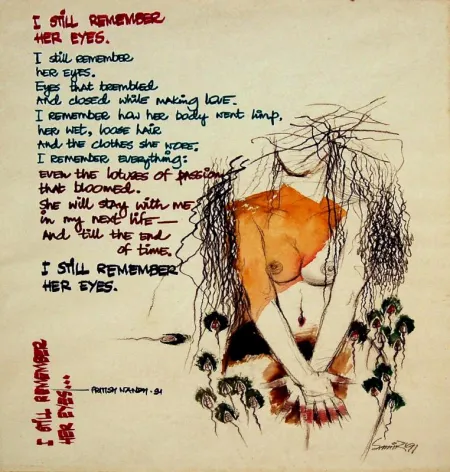 I STILL REMEMBER
HER EYES.
I still remember
her eyes.
Eyes that trembled
And closed while making love.
I remember how her body went limp,
her wet, loose hair
And the clothes she wore.
I remember everything:
even the lotuses of passion
that bloomed.
She will stay with me
in my next life—
And till the end
of time.
I STILL REMEMBER
HER EYES.
I STILL REMEMBER
HER EYES...
PRITISH NANDY - 91